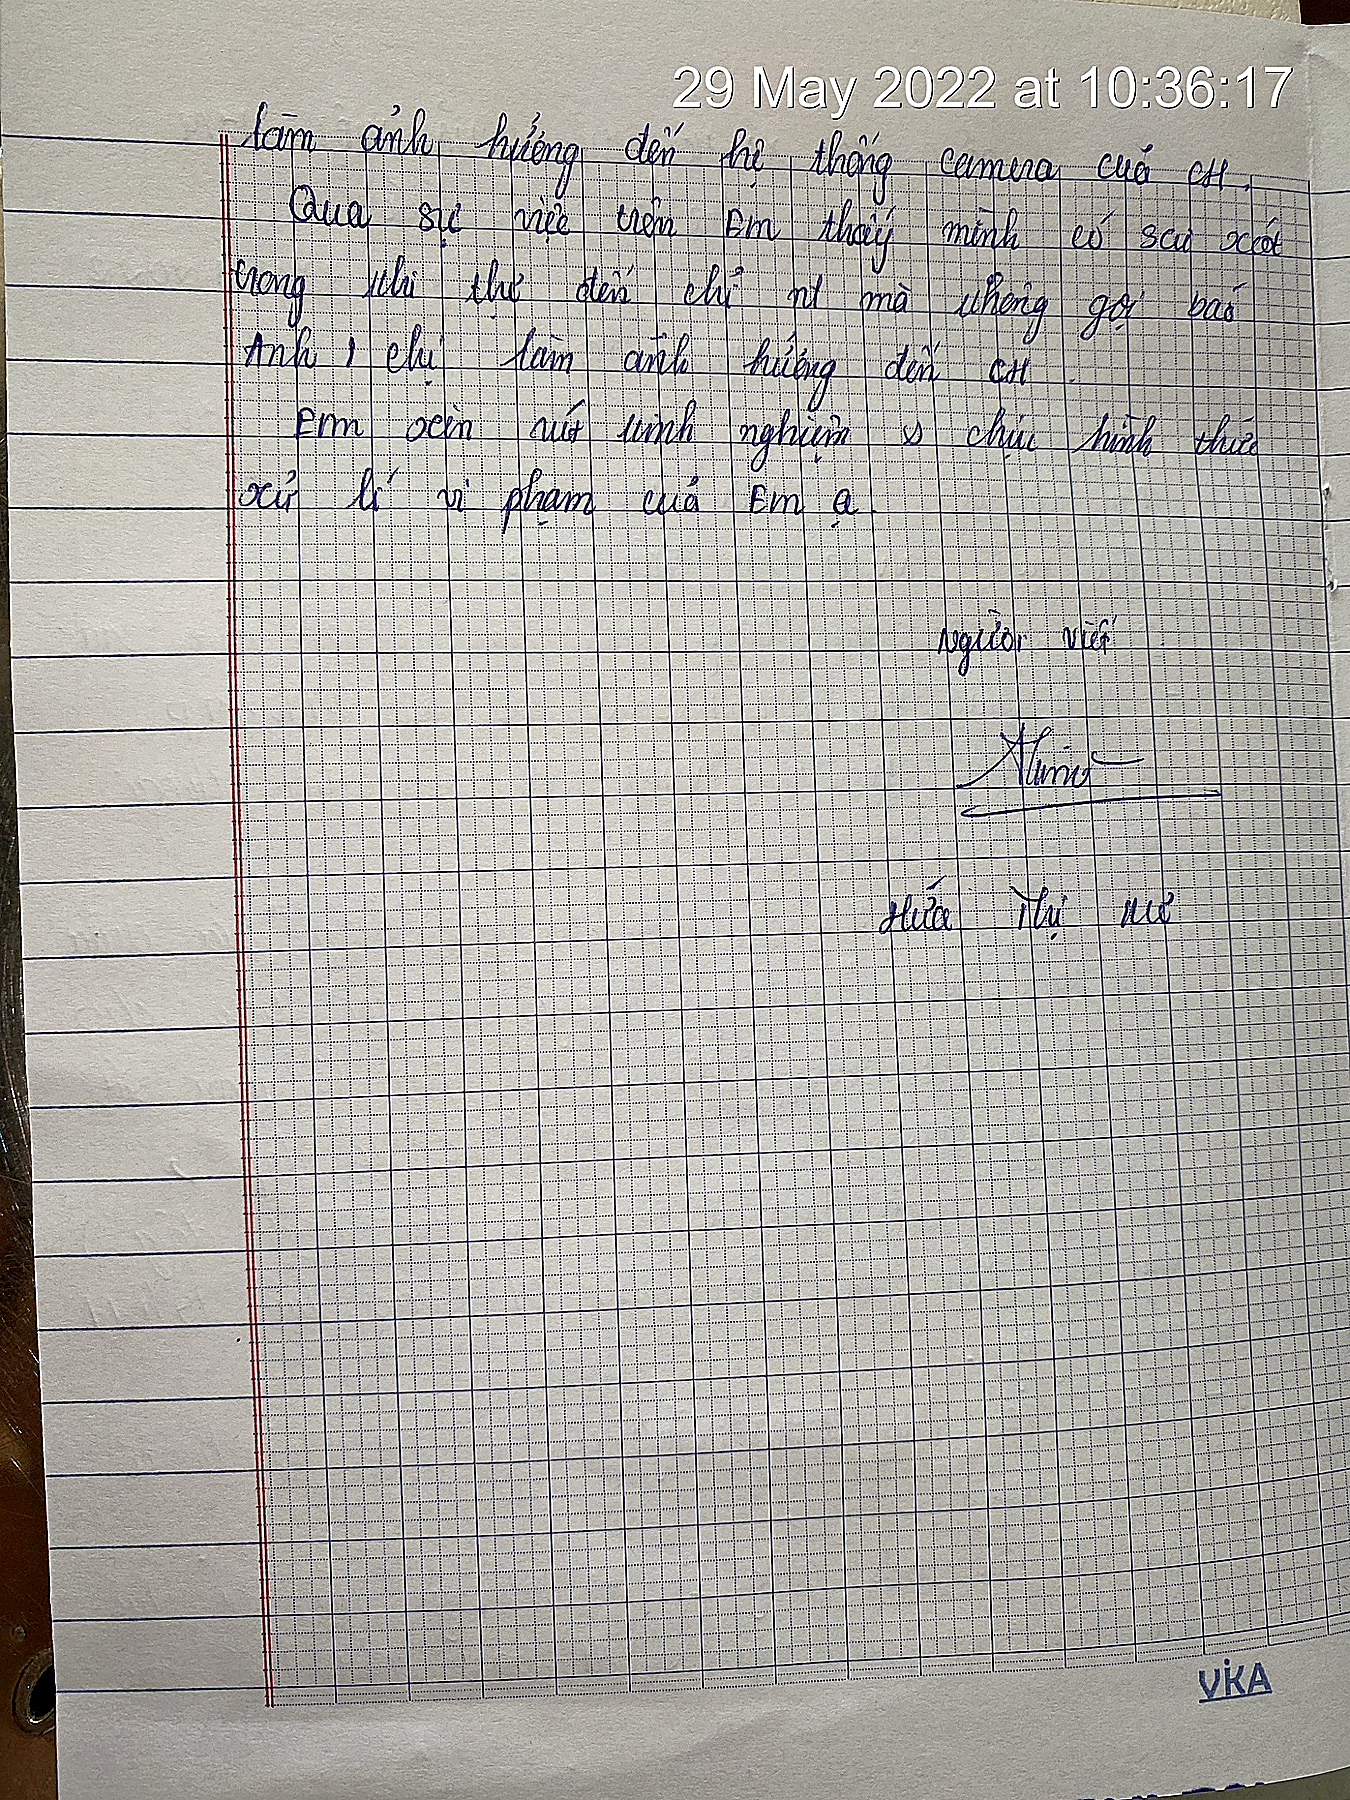 29 May 2022 at 10:36:17
làm ảnh hưởng đến hệ thống camera của CH.
Qua sự việc trên Em thấy mình có sai xót
trong khi thợ đến chỉ nt mà không gọi báo
Anh, chị làm ảnh hưởng đến CH.
Em xin rút kinh nghiệm và chịu hình thức
xử lí vi phạm của Em ạ.
Người viết
Hứa Thị
VIKA